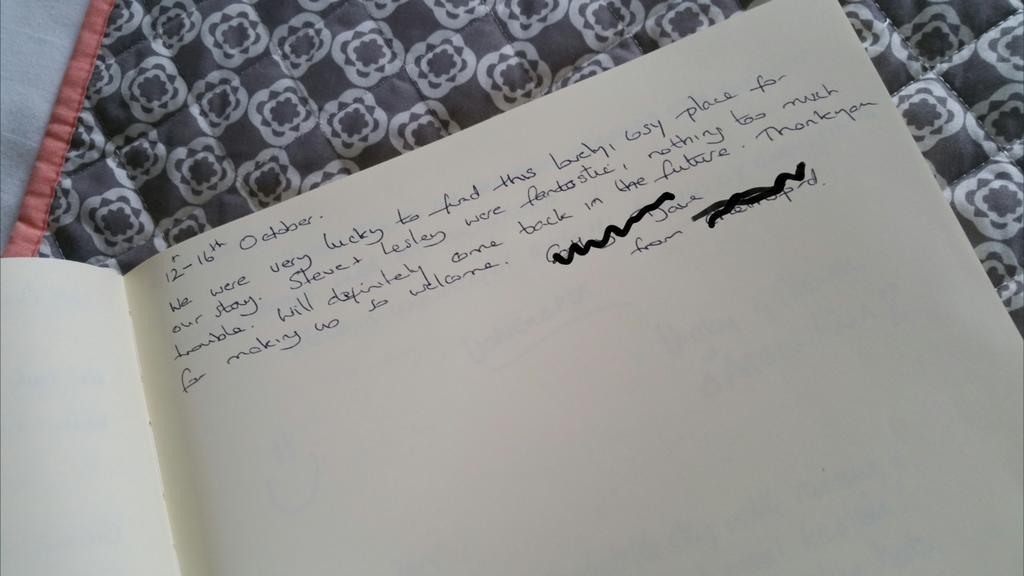 12-16th October.
We were very lucky to find this lovely, cosy place for
our stay. Steve + Lesley were fantastic, nothing too much
trouble. Will definitely come back in the future. Thankyou
for making us so welcome. Dave
from